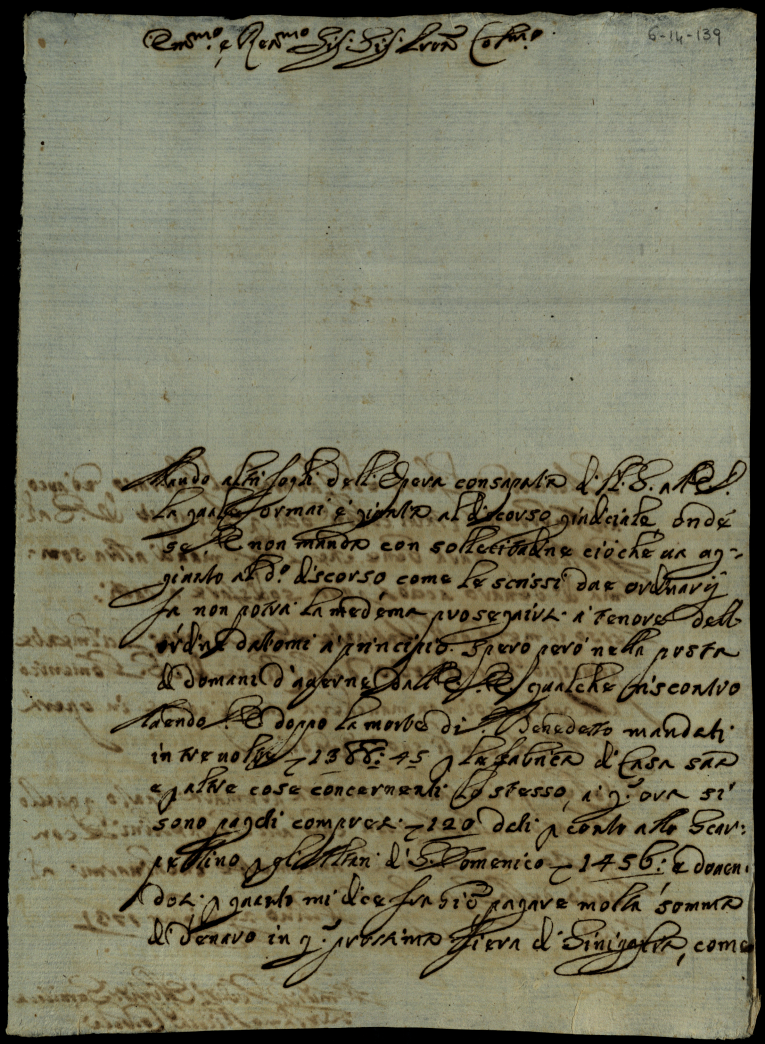 Em.mo e Reu.mo Sig.r Sig.r Pron Col.mo
6-14-139
Mando altri fogli dell'Opera consaputa di M. B. a V. E.
la quale hormai è giunta al discorso giudiciale, onde
se V. E. non manda con sollecitudine ciò che ua ag-
giunto al d.o discorso come le scrissi due ordinarij
fa non potrà la medema proseguire a tenore dell
ordine datomi a principio. Spero però nella posta
di domani d'auerne dall'E. V. qualche riscontro
hauendo V. E. doppo la morte di Benedetto mandati
in tre uolte 1388: 45 p la fabrica di Casa sua
e p altre cose concernenti lo stesso, a q.t ora si
sono pagati compresi 120 dati p conto allo Scar-
pellino p gli Altari di S. Domenico 1456: e douen-
dosi p quanto mi dice fra Gio pagare molta somma
di denaro in q.a prossima Fiera di Sinigaglia, come